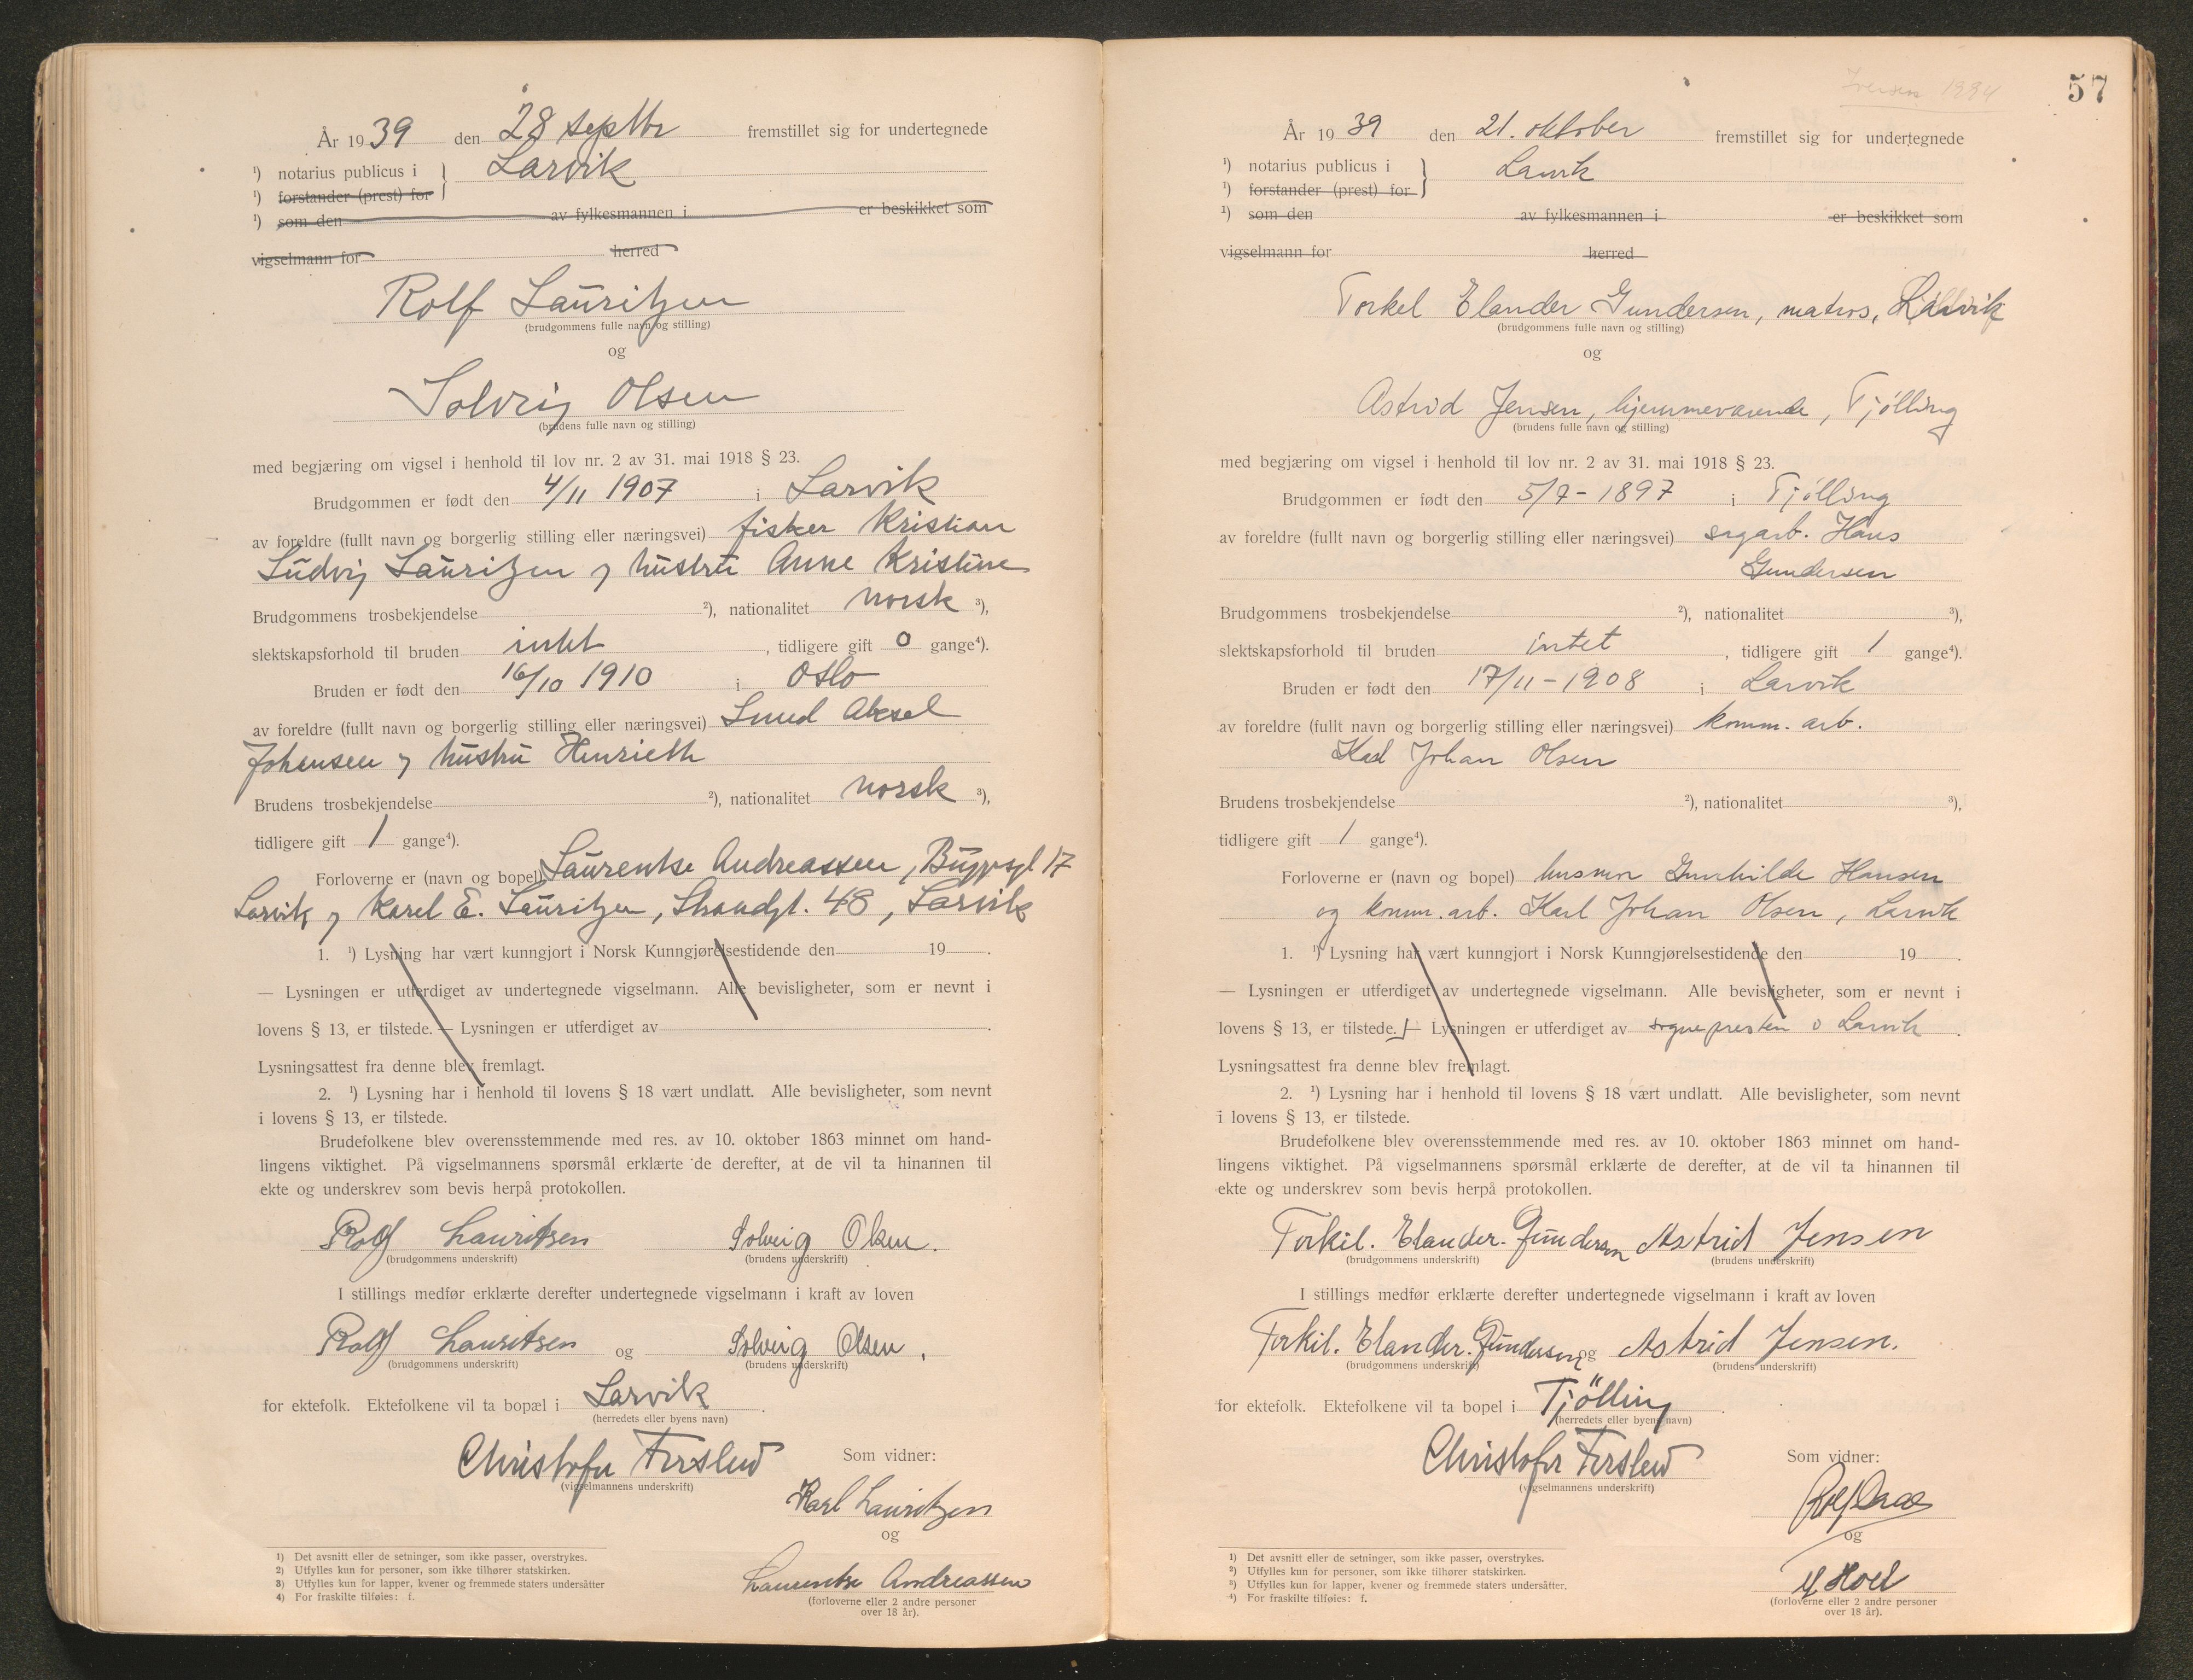 År 1939 den 28 septbr fremstillet sig for undertegnede
¹) notarius publicus i } Larvik
¹) forstander (prest) for
¹) som den av fylkesmannen i er beskikket som
vigselmann for herred
Rolf Lauritzen
(brudgommens fulle navn og stilling)
og
Solveig Olsen
(brudens fulle navn og stilling)
med begjæring om vigsel i henhold til lov nr. 2 av 31. mai 1918 § 23.
Brudgommen er født den 4/11 1907 i Larvik
av foreldre (fullt navn og borgerlig stilling eller næringsvei) fisker Kristian
Ludvig Lauritzen og hustru Anne Kristine
Brudgommens trosbekjendelse ²), nationalitet norsk ³),
slektskapsforhold til bruden intet, tidligere gift 0 gange⁴).
Bruden er født den 16/10 1910 i Oslo
av foreldre (fullt navn og borgerlig stilling eller næringsvei) Smed Aksel
Johansen og hustru Henriette
Brudens trosbekjendelse ²), nationalitet norsk ³),
tidligere gift 1 gange⁴).
Forloverne er (navn og bopel) Laurentse Andreassen, Byggsgt 17
Larvik og Karel E. Lauritzen, Strandgt. 48, Larvik
1. ¹) Lysning har vært kunngjort i Norsk Kunngjørelsestidende den 19 .
— Lysningen er utferdiget av undertegnede vigselmann. Alle bevisligheter, som er nevnt i
lovens § 13, er tilstede. — Lysningen er utferdiget av .
Lysningsattest fra denne blev fremlagt.
2. ¹) Lysning har i henhold til lovens § 18 vært undlatt. Alle bevisligheter, som nevnt
i lovens § 13, er tilstede.
Brudefolkene blev overensstemmende med res. av 10. oktober 1863 minnet om hand-
lingens viktighet. På vigselmannens spørsmål erklærte de derefter, at de vil ta hinannen til
ekte og underskrev som bevis herpå protokollen.
Rolf Lauritsen Solveig Olsen.
(brudgommens underskrift) (brudens underskrift)
I stillings medfør erklærte derefter undertegnede vigselmann i kraft av loven
Rolf Lauritsen og Solveig Olsen,
(brudgommens underskrift) (brudens underskrift)
for ektefolk. Ektefolkene vil ta bopæl i Larvik.
(herredets eller byens navn)
Christofer Ferslew Som vidner:
(vigselmannens underskrift)
Karl Lauritzen
og
Laurentse Andreassen
(forloverne eller 2 andre personer
over 18 år).
1) Det avsnitt eller de setninger, som ikke passer, overstrykes.
2) Utfylles kun for personer, som ikke tilhører statskirken.
3) Utfylles kun for lapper, kvener og fremmede staters undersåtter
4) For fraskilte tilføies: f.
Iversen 1994
57
År 1939 den 21. oktober fremstillet sig for undertegnede
¹) notarius publicus i } Larvik
¹) forstander (prest) for
¹) som den av fylkesmannen i er beskikket som
vigselmann for herred
Torkel Elander Gundersen, matros, Larvik
(brudgommens fulle navn og stilling)
og
Astrid Jensen, hjemmeværende, Tjølling
(brudens fulle navn og stilling)
med begjæring om vigsel i henhold til lov nr. 2 av 31. mai 1918 § 23.
Brudgommen er født den 5/7-1897 i Tjølling
av foreldre (fullt navn og borgerlig stilling eller næringsvei) sagarb. Hans
Gundersen
Brudgommens trosbekjendelse ²), nationalitet ³),
slektskapsforhold til bruden intet, tidligere gift 1 gange⁴).
Bruden er født den 17/11-1908 i Larvik
av foreldre (fullt navn og borgerlig stilling eller næringsvei) komm. arb.
Karl Johan Olsen
Brudens trosbekjendelse ²), nationalitet ³),
tidligere gift 1 gange⁴).
Forloverne er (navn og bopel) husmor Gunhilde Hansen
og komm. arb. Karl Johan Olsen, Larvik
1. ¹) Lysning har vært kunngjort i Norsk Kunngjørelsestidende den 19 .
— Lysningen er utferdiget av undertegnede vigselmann. Alle bevisligheter, som er nevnt i
lovens § 13, er tilstede. — Lysningen er utferdiget av sognepresten i Larvik.
Lysningsattest fra denne blev fremlagt.
2. ¹) Lysning har i henhold til lovens § 18 vært undlatt. Alle bevisligheter, som nevnt
i lovens § 13, er tilstede.
Brudefolkene blev overensstemmende med res. av 10. oktober 1863 minnet om hand-
lingens viktighet. På vigselmannens spørsmål erklærte de derefter, at de vil ta hinannen til
ekte og underskrev som bevis herpå protokollen.
Torkil. Elander. Gundersen Astrid Jensen
(brudgommens underskrift) (brudens underskrift)
I stillings medfør erklærte derefter undertegnede vigselmann i kraft av loven
Torkil. Elander. Gundersen og Astrid Jensen.
(brudgommens underskrift) (brudens underskrift)
for ektefolk. Ektefolkene vil ta bopel i Tjölling.
(herredets eller byens navn)
Christofer Ferslew Som vidner:
(vigselmannens underskrift)
og
Hoel
(forloverne eller 2 andre personer
over 18 år).
1) Det avsnitt eller de setninger, som ikke passer, overstrykes.
2) Utfylles kun for personer, som ikke tilhører statskirken.
3) Utfylles kun for lapper, kvener og fremmede staters undersåtter.
4) For fraskilte tilføies: f.